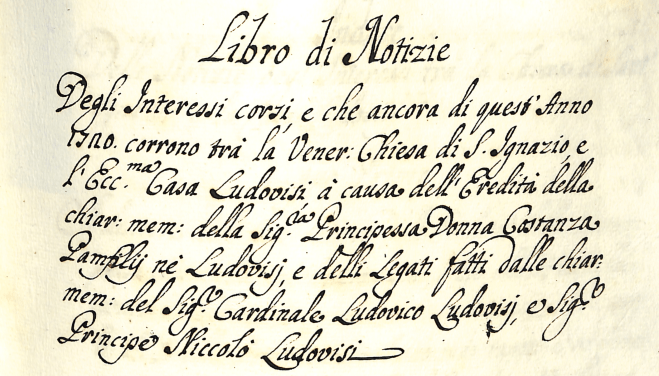 Libro di Notizie
Degli Interessi corsi, e che ancora di quest'Anno
1720. corrono trà la Vener: Chiesa di S. Ignazio, e
l'Ecc.ma Casa Ludovisi à causa dell'Eredità della
chiar: mem: della Sig.ra Principessa Donna Costanza
Pamfilij né Ludovisj, e delli Legati fatti dalle chiar:
mem: del Sig.r Cardinale Ludovico Ludovisj, e Sig.r
Principe Niccolò Ludovisi